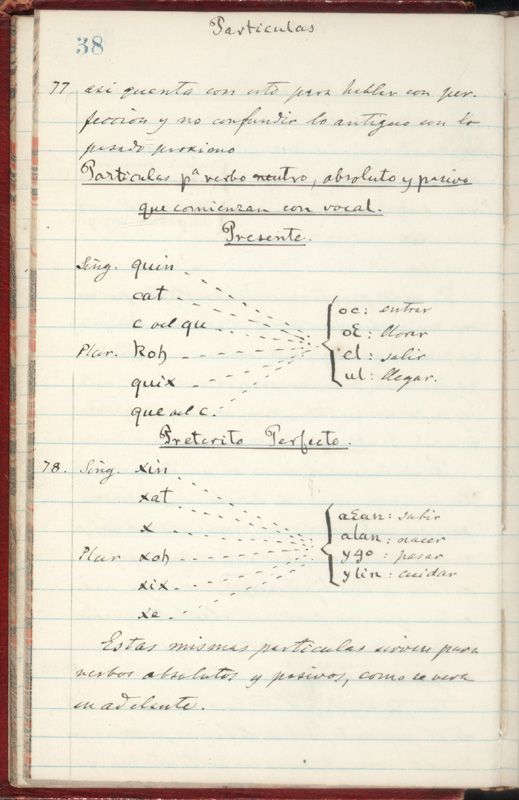 Particulas
38
77 asi quenta con esto para hablar con per-
feccion y no confundir lo antiguo con lo
pasado proximo
Particulas pa verbo neutro, absoluto y pasivo
que comienzan con vocal.
Presente.
Sing. quin
cat
c vel qu
Plur. koh
quix
que vel c.
oc: entrar
oɛ: llorar
el: salir
ul: llegar.
Preterito Perfecto.
78. Sing. xin
xat
x
Plur xoh
xix
xe
aɛan: subir
alan: nacer
ygo: pasar
ylin: cuidar
Estas mismas particulas sirven para
verbos absolutos y pasivos, como se vera
en adelante.